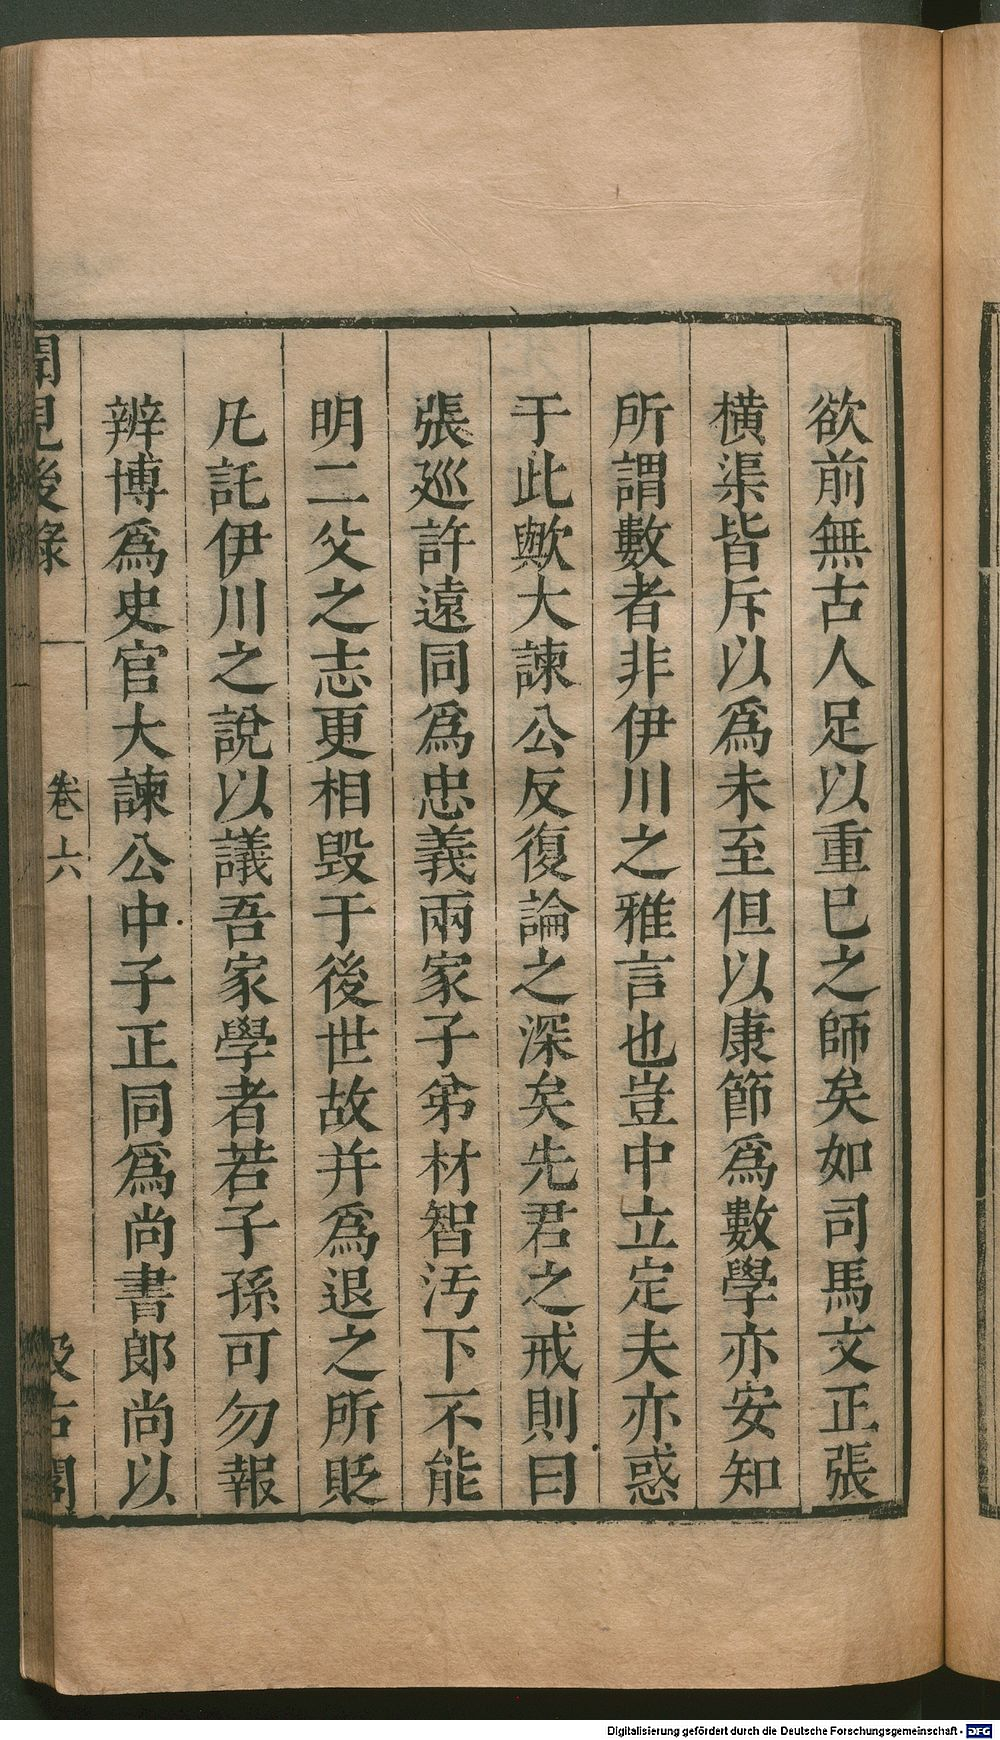 欲前無古人足以重巳之師矣如司馬文正張
橫渠皆斥以爲未至但以康節爲數學亦安知
所謂數者非伊川之雅言也豈中立定夫亦惑
于此歟大諫公反復論之深矣先君之戒則曰
張廵許遠同爲忠義兩家子弟材智汚下不能
明二父之志更相毀于後世故并爲退之所貶
凡託伊川之說以議吾家學者若子孫可勿報
辨博爲史官大諫公中子正同爲尚書郞尚以
聞見後錄 卷六 汲古閣
Digitalisierung gefördert durch die Deutsche Forschungsgemeinschaft - DFG